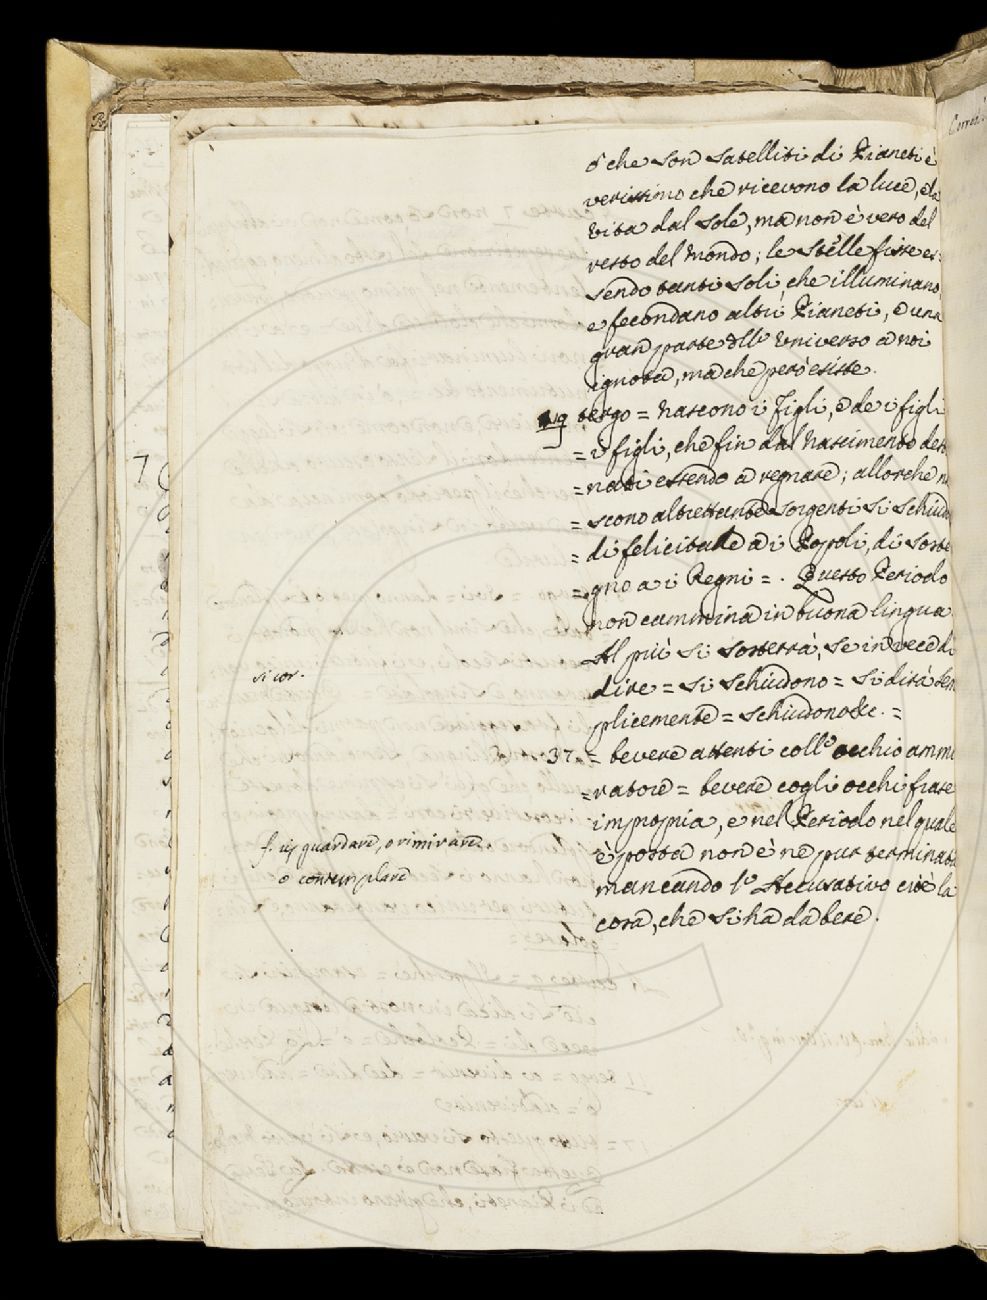 o' che son satelliti di Pianeti è
verissimo che ricevono la luce, e la
vita dal sole, ma non è vero del
resto del Mondo; le stelle fisse es:
sendo tanti soli che illuminano,
e fecondano altri Pianeti, e una
gran parte dell' Universo a noi
ignota, ma che però esiste.
19 tergo = Nascono i figli, e de i figli
= i figli, che fin dal Nascimento desti
= nati essendo a regnare; allorche na
= scono altrettante sorgenti si schiudon
= di felicità a i Popoli, di soste
= gno a i Regni = . Questo Periodo
non cammina in buona lingua
Al più si sosterrà, se invece di
si cor.
dire = si schiudono = si dirà sem
plicemente = schiudono &c. =
37. = bevere attenti coll' occhio ammi
= ratore = bevere cogli occhi frase
impropria, e nel Periodo nel quale
guardare, o rimirare,
è posta non è ne pur terminata
o contemplare
mancando l' Accusativo cioè la
cosa, che si ha da bere.
7